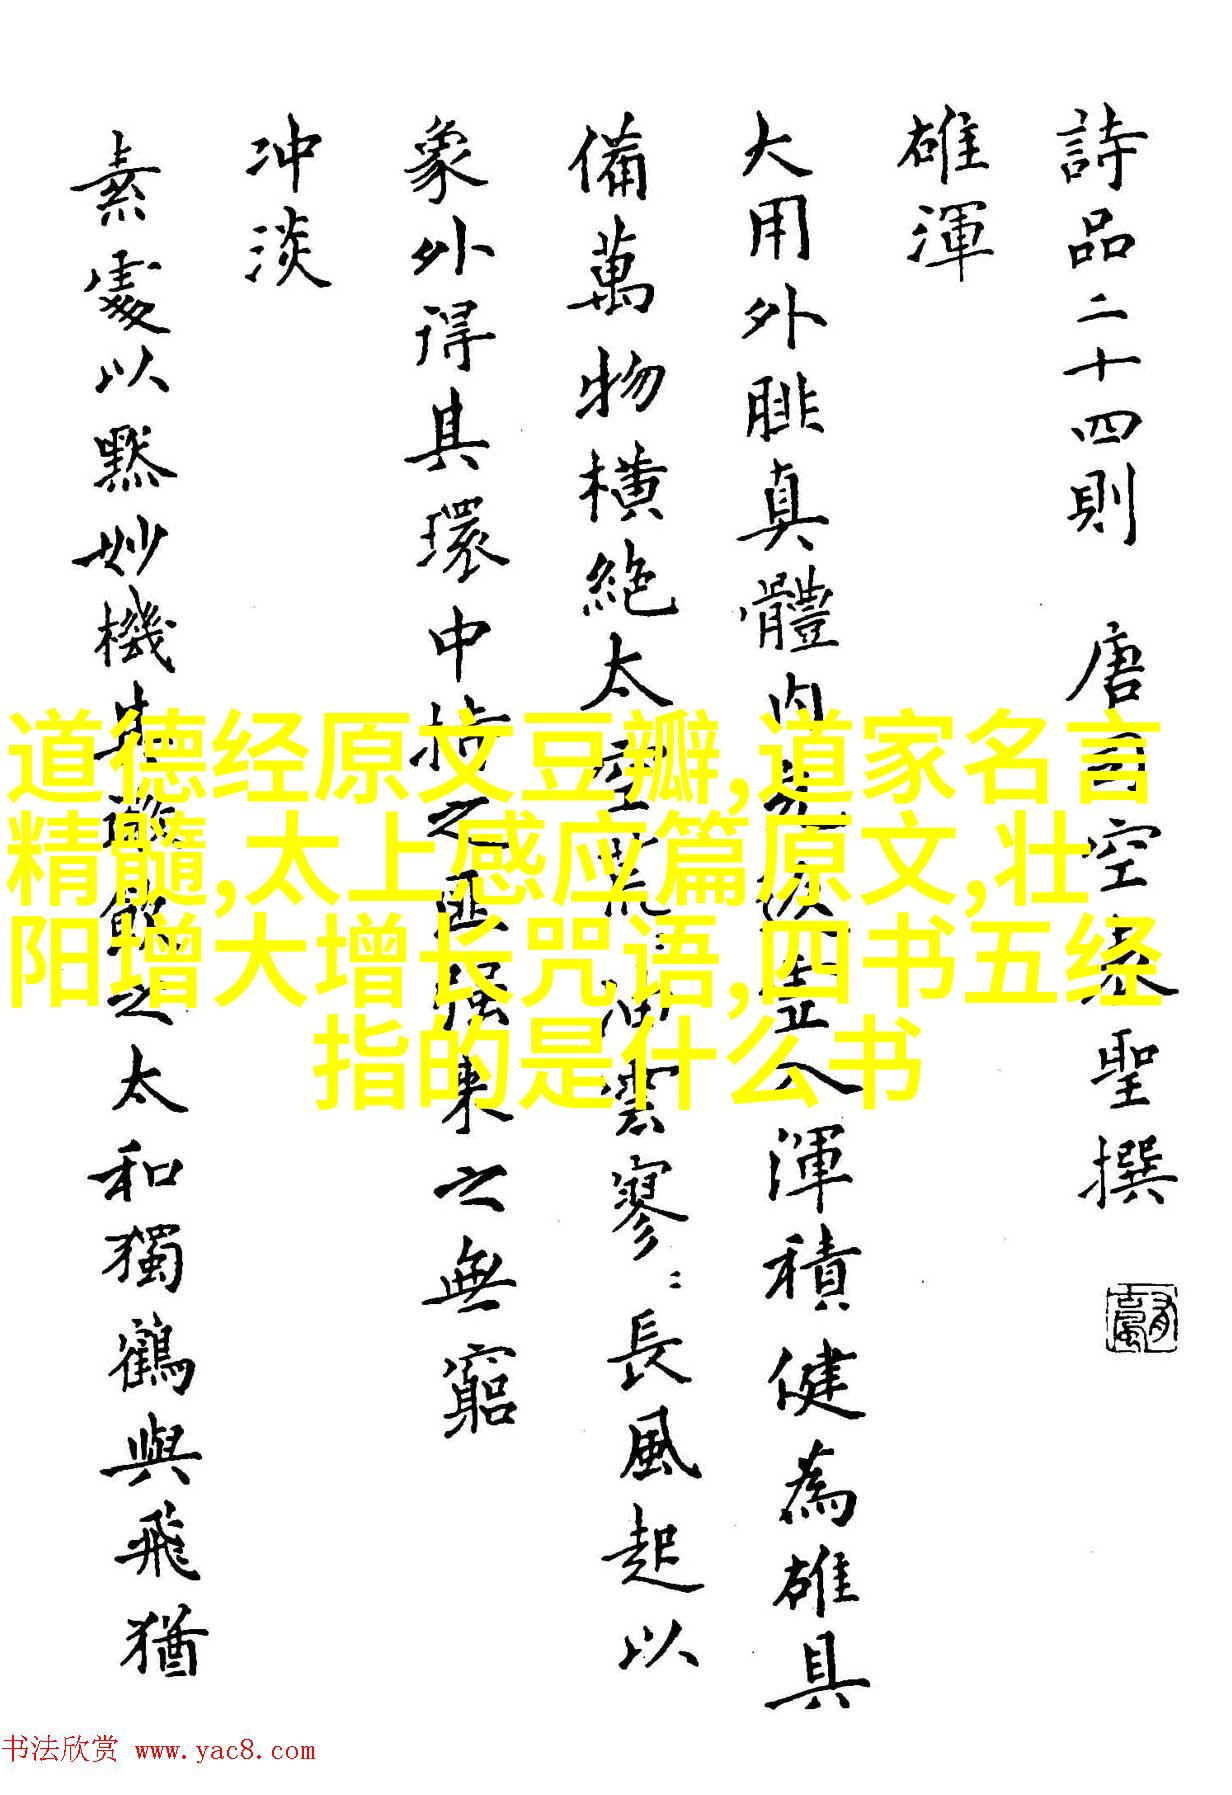 詩品二十四則 唐司空表聖撰
雄渾
大用外腓真體內充返虛入渾積健為雄具
備萬物橫絕太空荒荒油雲寥寥長風起以
象外得其環中持之匪强來之無窮
冲淡
素處以默妙機其微飲之太和獨鶴與飛猶
道德经原文豆瓣,道家名言
精髓,太上感应篇原文,壮
阳增大增长咒语,四书五经
指的是什么书
书法欣赏 www.yac8.com